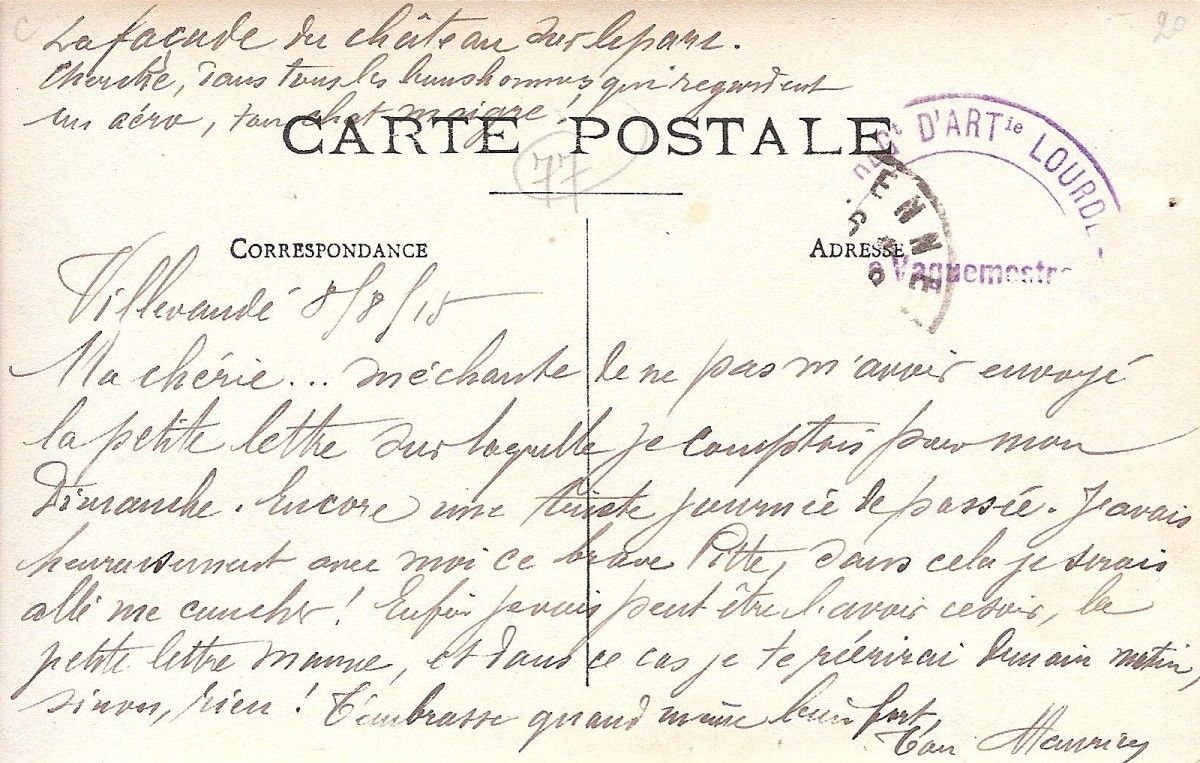 La façade du château sur le parc.
Cherche, dans tous les bonshommes qui regardent
un aéro, ton chat maigre!
CARTE POSTALE
77
20
D'ARTie LOURDE
Vaguemestre
ENNE
CORRESPONDANCE
ADRESSE
Villevaudé 8/8/15
Ma chérie... méchante de ne pas m'avoir envoyé
la petite lettre sur laquelle je comptais pour mon
Dimanche. Encore une triste journée de passée. J'avais
heureusement avec moi ce brave Pitte, sans cela je serais
allé me coucher! Enfin je vais peut être l'avoir ce soir, la
petite lettre mauve, et dans ce cas je te réécrirai demain matin,
sinon, rien! T'embrasse quand même bien fort,
Ton